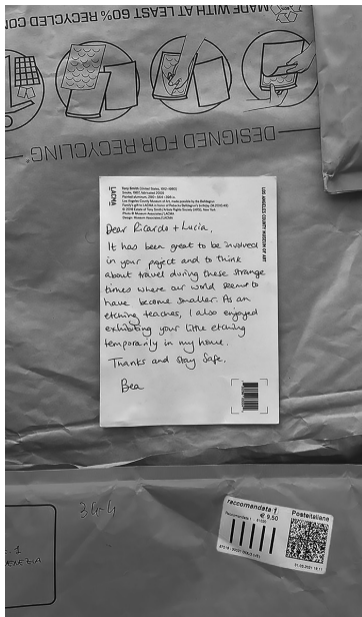 MADE WITH AT LEAST 60% RECYCLED CON
DESIGNED FOR RECYCLING
LACMA
LOS ANGELES COUNTY MUSEUM OF ART
Dear Ricardo + Lucia,
It has been great to be involved
in your project and to think
about travel during these strange
times where our world seems to
have become smaller. As an
etching teacher, I also enjoyed
exhibiting your little etching
temporarily in my home.
Thanks and Stay Safe.
Bea
raccomandata 1
Posteitaliane
€ 9,50